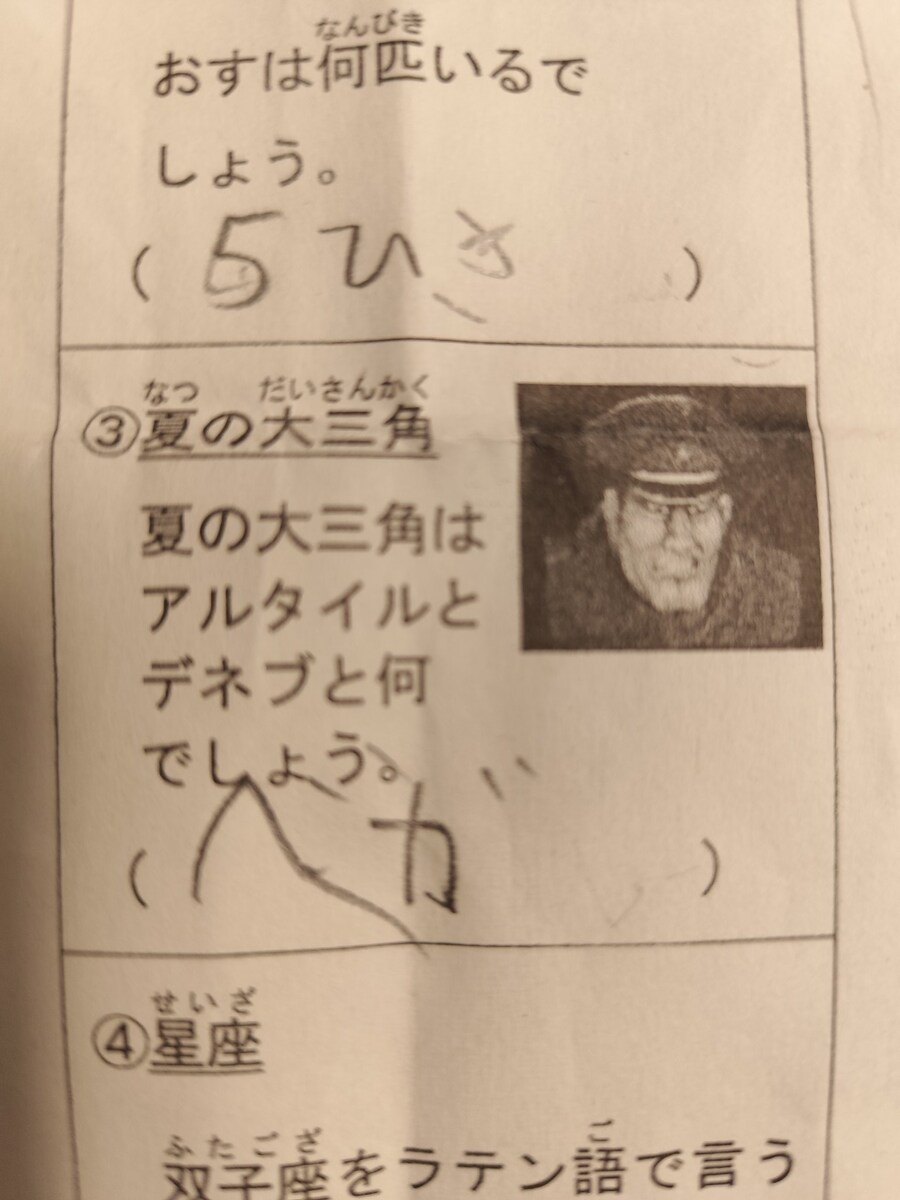 なんびき
おすは何匹いるで
しょう。
(5ひき)
なつ だいさんかく
③夏の大三角
夏の大三角は
アルタイルと
デネブと何
でしょう。
(べガ)
せいざ
④星座
ふたござ ご
双子座をラテン語で言う